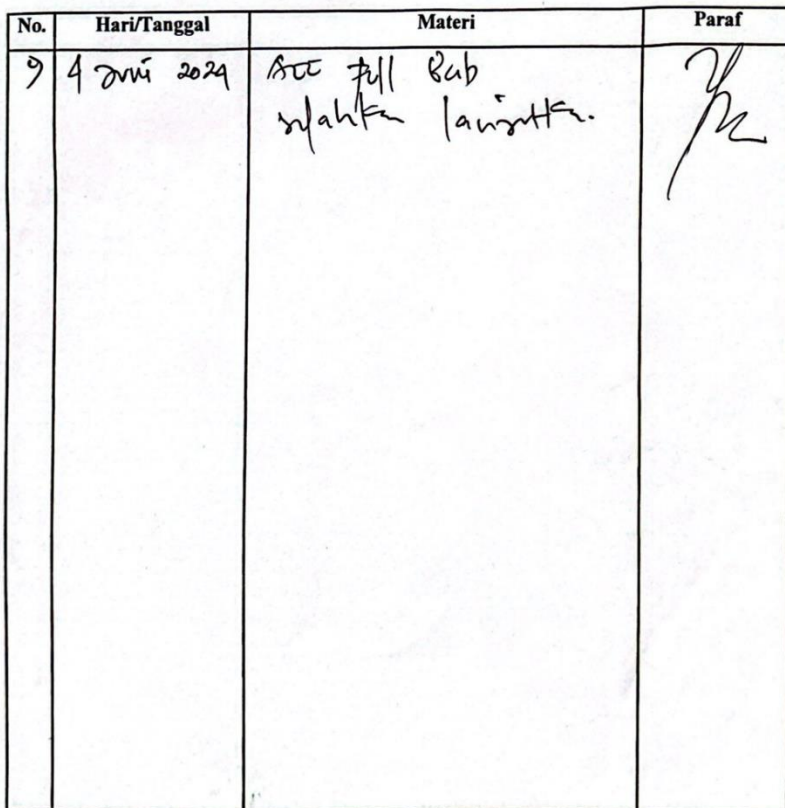 No. Hari/Tanggal Materi Paraf
9 4 Juni 2024 Acc Full Bab
silahkan lanjutkan.